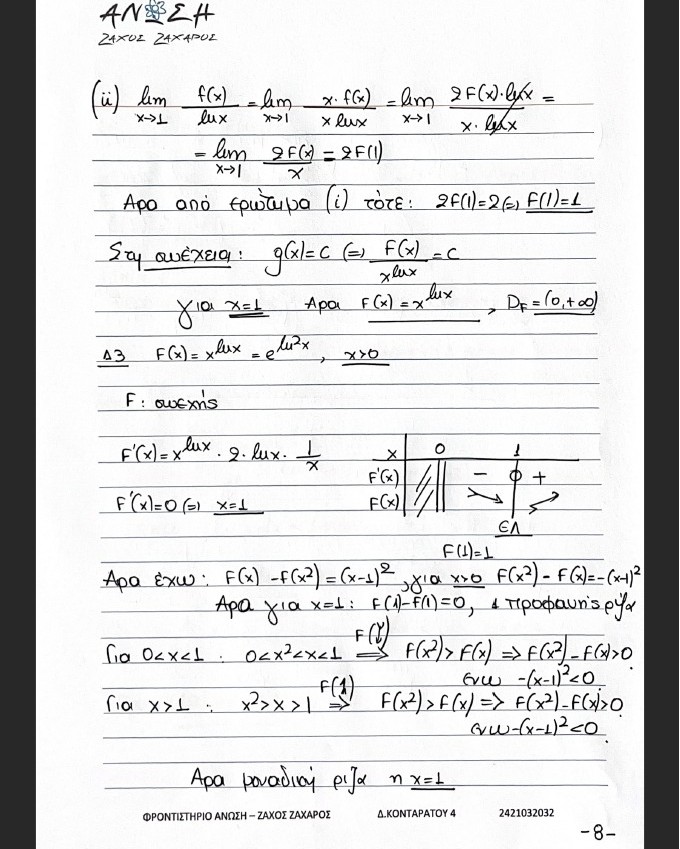 ΑΝΩΣΗ
ΖΑΧΟΣ ΖΑΧΑΡΟΣ
(ii) lim x→1 f(x)/lnx = lim x→1 x·f(x)/x lnx = lim x→1 2F(x)·lnx/x·lnx =
= lim x→1 2F(x)/x = 2F(1)
Αρα από ερώτημα (i) τότε: 2F(1)=2 (=) F(1)=1
Στη συνέχεια: g(x)=c (=) F(x)/x^lnx = c
για x=1 Αρα F(x)=x^lnx, D_F=(0,+∞)
Δ3 F(x)=x^lnx = e^ln²x, x>0
F: συνεχής
F'(x)=x^lnx · 2·lnx· 1/x
F'(x)=0 (=) x=1
x 0 1
F'(x) − 0 +
F(x) ↘ ↗
ΕΛ
F(1)=1
Αρα έχω: F(x) -F(x²)=(x-1)², για x>0 F(x²)-F(x)=-(x-1)²
Αρα για x=1: F(1)-F(1)=0, 1 προφανής ρίζα
Για 0<x<1 : 0<x²<x<1 F(↓) ⟹ F(x²)>F(x) ⟹ F(x²)-F(x)>0
ενω -(x-1)²<0
Για x>1 : x²>x>1 F(↑) ⟹ F(x²)>F(x) ⟹ F(x²)-F(x)>0
ενω -(x-1)²<0
Αρα μοναδική ριζα η x=1
ΦΡΟΝΤΙΣΤΗΡΙΟ ΑΝΩΣΗ – ΖΑΧΟΣ ΖΑΧΑΡΟΣ Δ.ΚΟΝΤΑΡΑΤΟΥ 4 2421032032
-8-